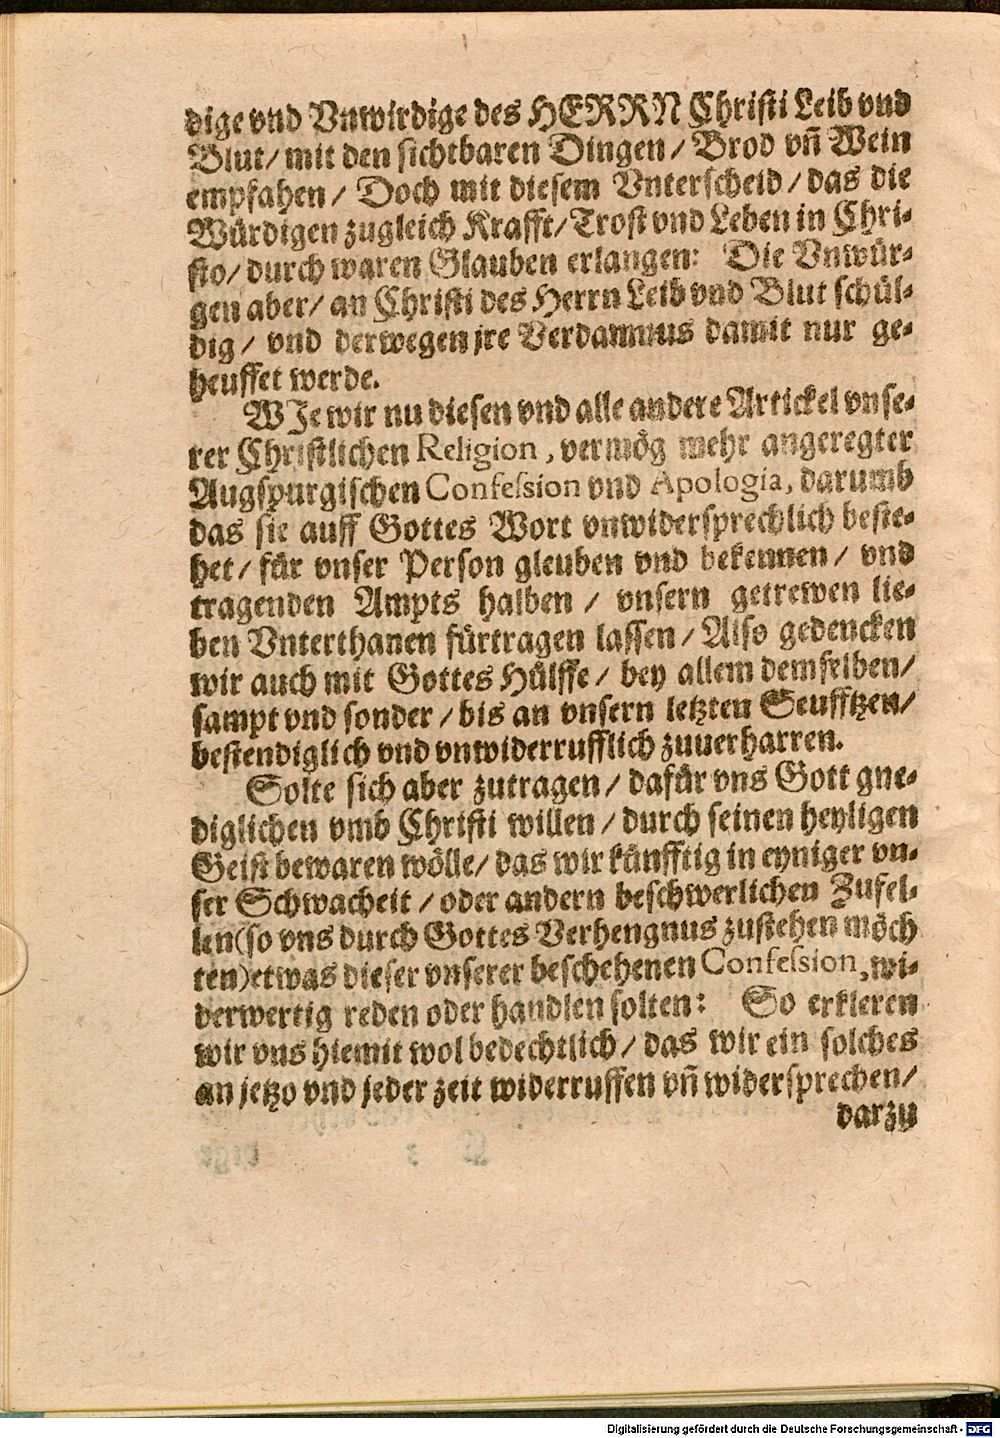 dige vnd Vnwirdige des HERRN Christi Leib vnd
Blut/ mit den sichtbaren Dingen/ Brod vñ Wein
empfahen/ Doch mit diesem Vnterscheid/ das die
Würdigen zugleich Krafft/ Trost vnd Leben in Chri-
sto/ durch waren Glauben erlangen: Die Vnwür-
gen aber/ an Christi des Herrn Leib vnd Blut schül-
dig/ vnd derwegen jre Verdamnus damit nur ge-
heuffet werde.
WJe wir nu diesen vnd alle andere Artickel vnse-
rer Christlichen Religion, vermög mehr angeregter
Augspurgischen Confession vnd Apologia, darumb
das sie auff Gottes Wort vnwidersprechlich beste-
het/ für vnser Person gleuben vnd bekennen/ vnd
tragenden Ampts halben/ vnsern getrewen lie-
ben Vnterthanen fürtragen lassen/ Also gedencken
wir auch mit Gottes Hülffe/ bey allem demselben/
sampt vnd sonder/ bis an vnsern letzten Seufftzen/
bestendiglich vnd vnwiderrufflich zuuerharren.
Solte sich aber zutragen/ dafür vns Gott gne-
diglichen vmb Christi willen/ durch seinen heyligen
Geist bewaren wölle/ das wir künfftig in eyniger vn-
ser Schwacheit/ oder andern beschwerlichen Zufel-
len(so vns durch Gottes Verhengnus zustehen möch
ten)etwas dieser vnserer beschehenen Confession, wi-
derwertig reden oder handlen solten: So erkleren
wir vns hiemit wolbedechtlich/ das wir ein solches
an jetzo vnd jeder zeit widerruffen vñ widersprechen/
darzu
Digitalisierung gefördert durch die Deutsche Forschungsgemeinschaft - DFG